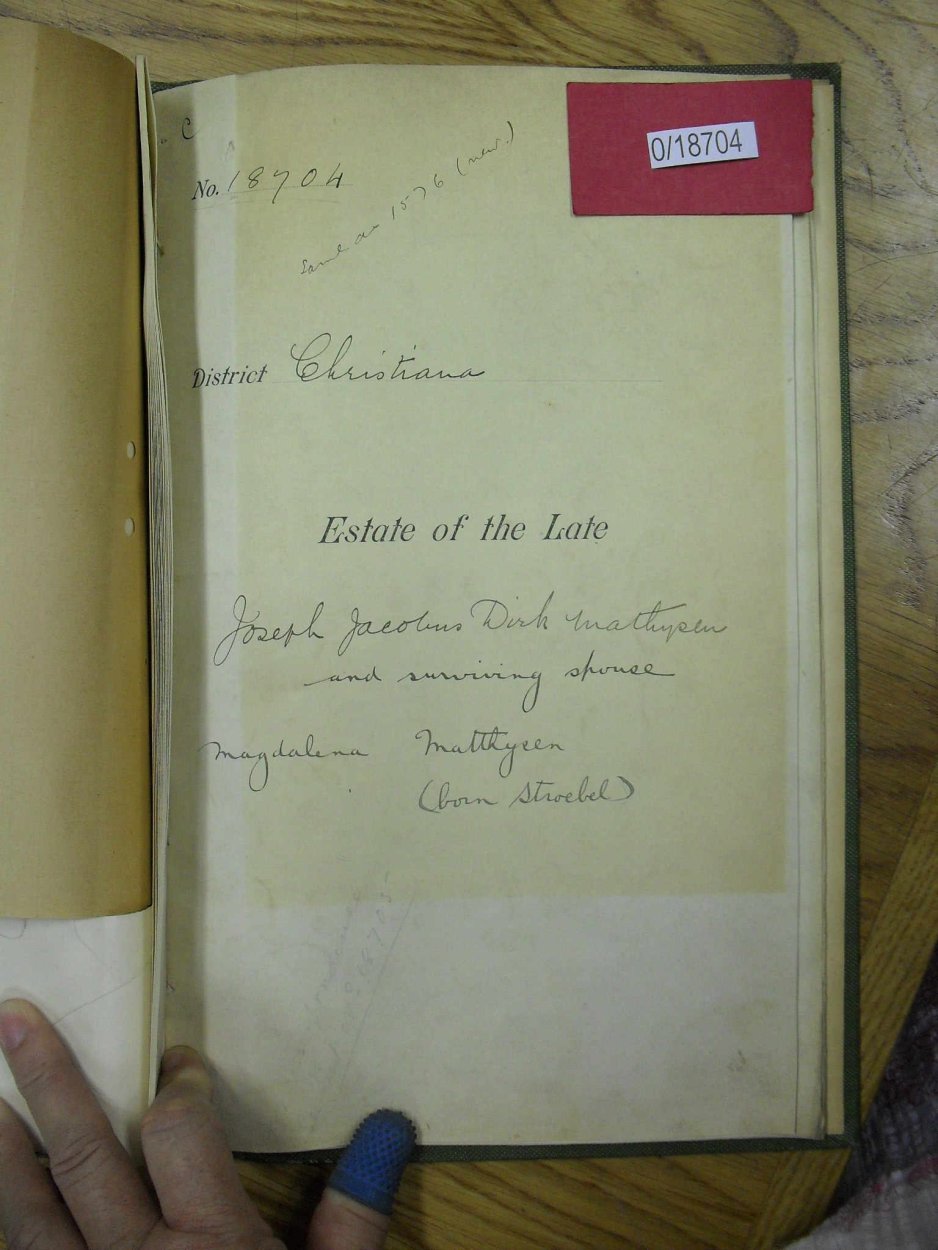 C
0/18704
No. 18704
Same as 1576 (new.)
District Christiana
Estate of the Late
Joseph Jacobus Dirk Mathysen
and surviving spouse
Magdalena Matthysen
(born Stroebel)